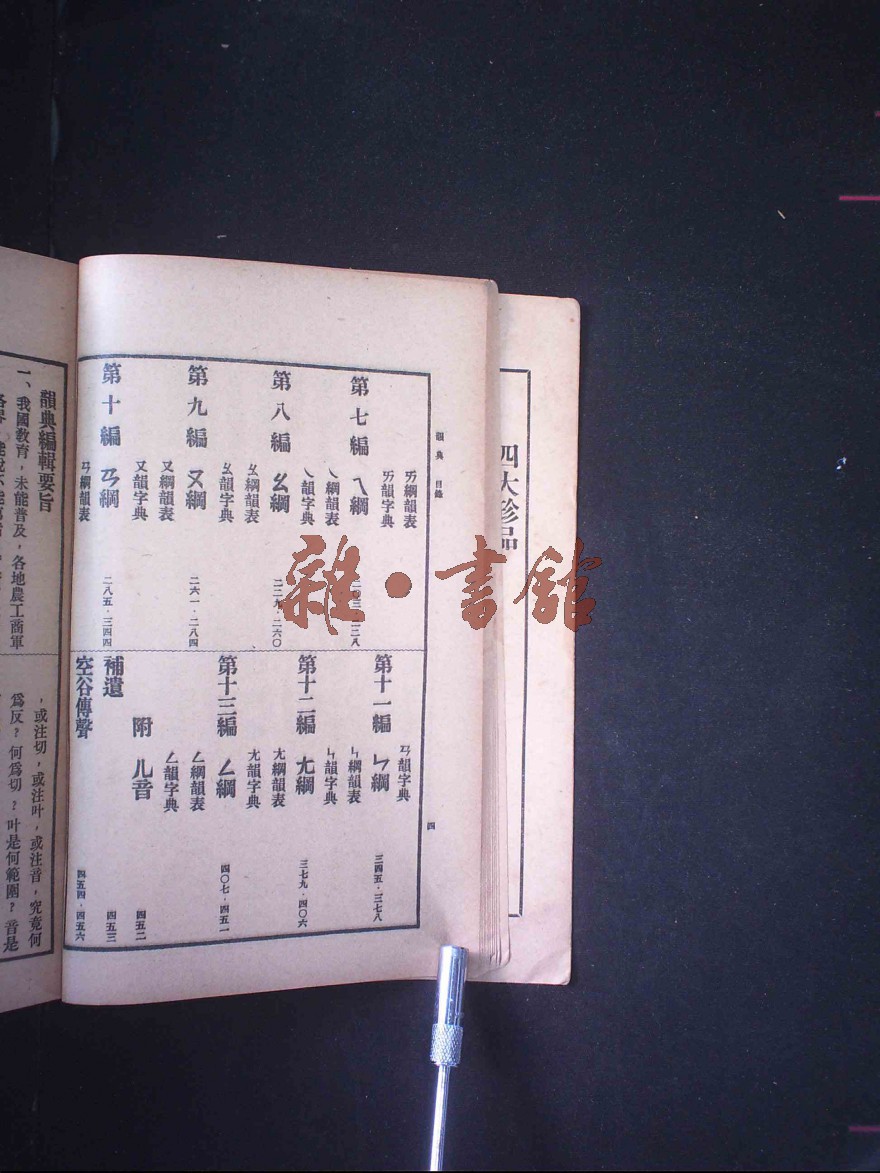 四大珍品
韻典 目錄 四
ㄞ綱韻表
ㄞ韻字典
第七編 ㄟ綱
ㄟ綱韻表
ㄟ韻字典
第八編 ㄠ綱 二二九·二六〇
ㄠ綱韻表
ㄠ韻字典
第九編 ㄡ綱 二六一·二八四
ㄡ綱韻表
ㄡ韻字典
第十編 ㄢ綱 二八五·三四四
ㄢ綱韻表
ㄢ韻字典
第十一編 ㄣ綱 三四五·三七八
ㄣ綱韻表
ㄣ韻字典
第十二編 ㄤ綱 三七九·四〇六
ㄤ綱韻表
ㄤ韻字典
第十三編 ㄥ綱 四〇七·四五一
ㄥ綱韻表
ㄥ韻字典
附 ㄦ音 四五二
補遺 四五三
空谷傳聲 四五四·四五六
韻典編輯要旨
一、我國教育，未能普及，各地農工商軍
，或注切，或注叶，或注音，究竟何
爲反？何爲切？叶是何範圍？音是
雜·書館